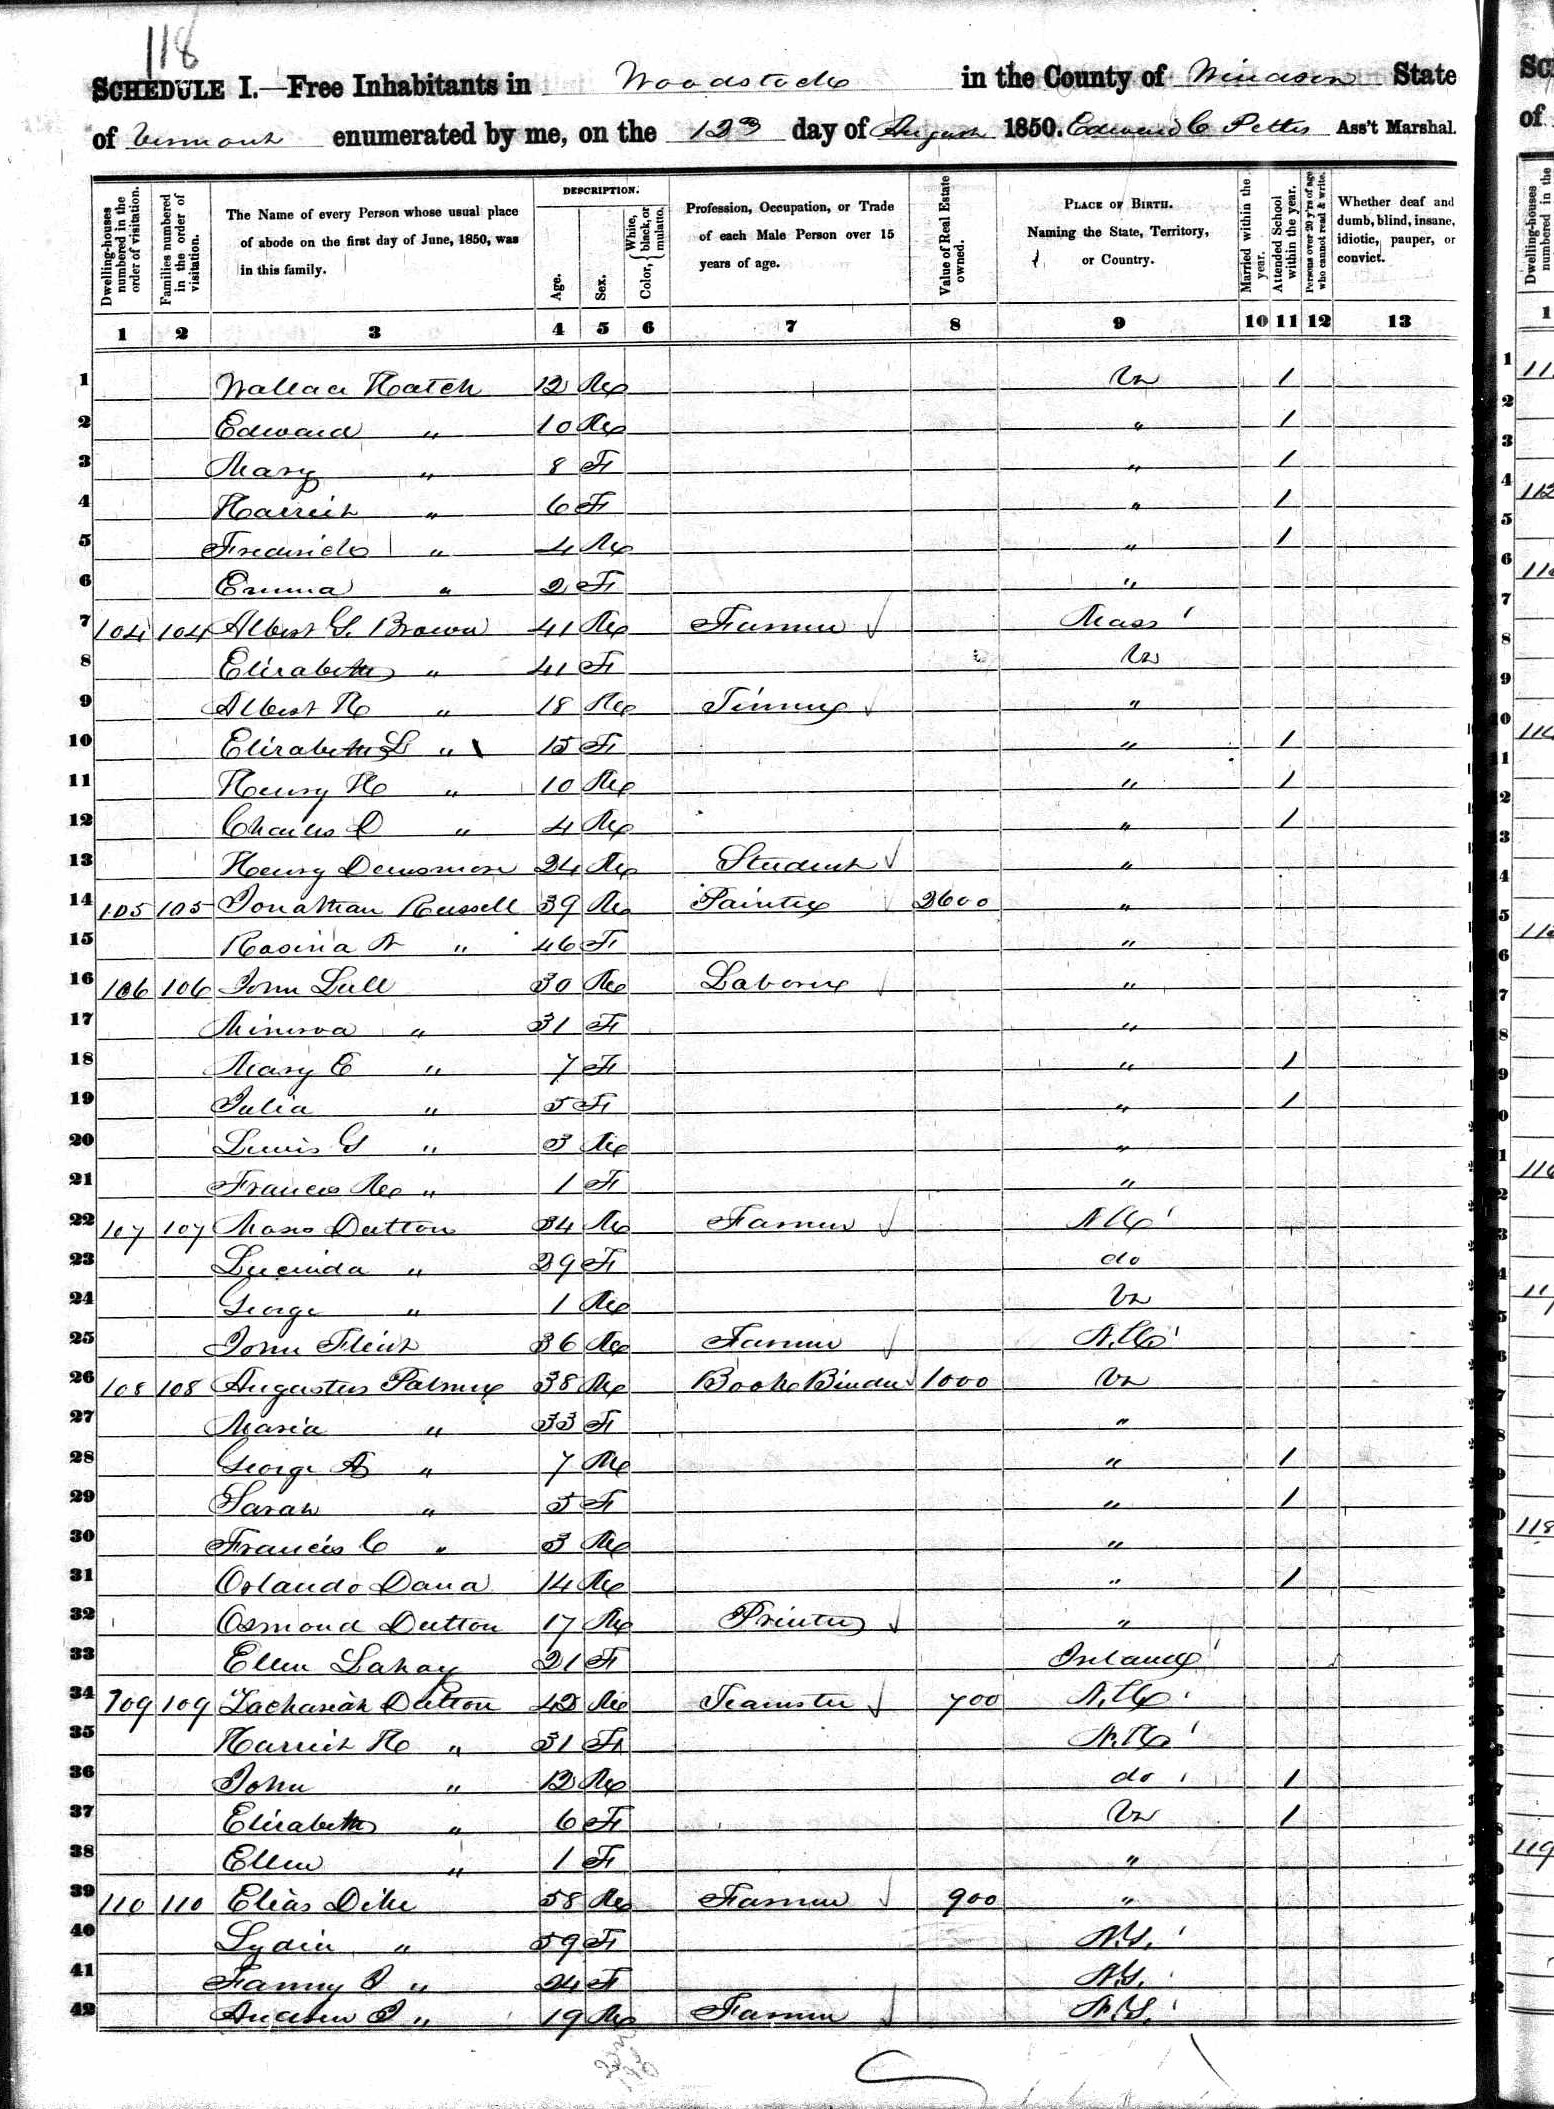 118
SCHEDULE I.—Free Inhabitants in Woodstock in the County of Windsor State
of Vermont enumerated by me, on the 12 day of August 1850. Edward C Pettis Ass't Marshal.
Dwelling-houses numbered in the order of visitation.
Families numbered in the order of visitation.
The Name of every Person whose usual place of abode on the first day of June, 1850, was in this family.
DESCRIPTION.
Age.
Sex.
Color, { White, black, or mulatto.
Profession, Occupation, or Trade of each Male Person over 15 years of age.
Value of Real Estate owned.
PLACE OF BIRTH. Naming the State, Territory, or Country.
Married within the year.
Attended School within the year.
Persons over 20 y'rs of age who cannot read & write.
Whether deaf and dumb, blind, insane, idiotic, pauper, or convict.
1 2 3 4 5 6 7 8 9 10 11 12 13
1 Wallace Hatch 12 M Vt 1
2 Edward " 10 M " 1
3 Mary " 8 F " 1
4 Harriet " 6 F " 1
5 Frederick " 4 M " 1
6 Emma " 2 F "
7 104 104 Albert G. Brown 41 M Farmer Mass
8 Elizabeth " 41 F Vt
9 Albert H " 18 M Tinner "
10 Elizabeth L " 15 F " 1
11 Henry H " 10 M " 1
12 Charles D " 4 M " 1
13 Henry Densmore 24 M Student "
14 105 105 Jonathan Russell 39 M Painter 2600 "
15 Rosina A " 46 F "
16 106 106 John Lull 30 M Laborer "
17 Minerva " 31 F "
18 Mary E " 7 F " 1
19 Julia " 5 F " 1
20 Lewis G " 3 M "
21 Frances M " 1 F "
22 107 107 Dutton 34 M Farmer
23 Lucinda " 29 F do
24 George " 1 M Vt
25 John 36 M Farmer
26 108 108 Augustus Palmer 38 M Book Binder 1000 Vt
27 Maria " 33 F "
28 George A " 7 M " 1
29 Sarah " 5 F " 1
30 Francis C " 3 M "
31 Orlando Dana 14 M " 1
32 Osmond Dutton 17 M Printer "
33 Ellen Lahay 21 F Ireland
34 109 109 Zachariah Dutton 42 M Teamster 700
35 Harriet H " 31 F N.H.
36 John " 12 M do 1
37 Elizabeth " 6 F Vt 1
38 Ellen " 1 F "
39 110 110 Elias Dike 58 M Farmer 900 "
40 Lydia " 59 F N.Y.
41 Fanny J " 24 F N.Y.
42 Andrew J " 19 M Farmer N.Y.